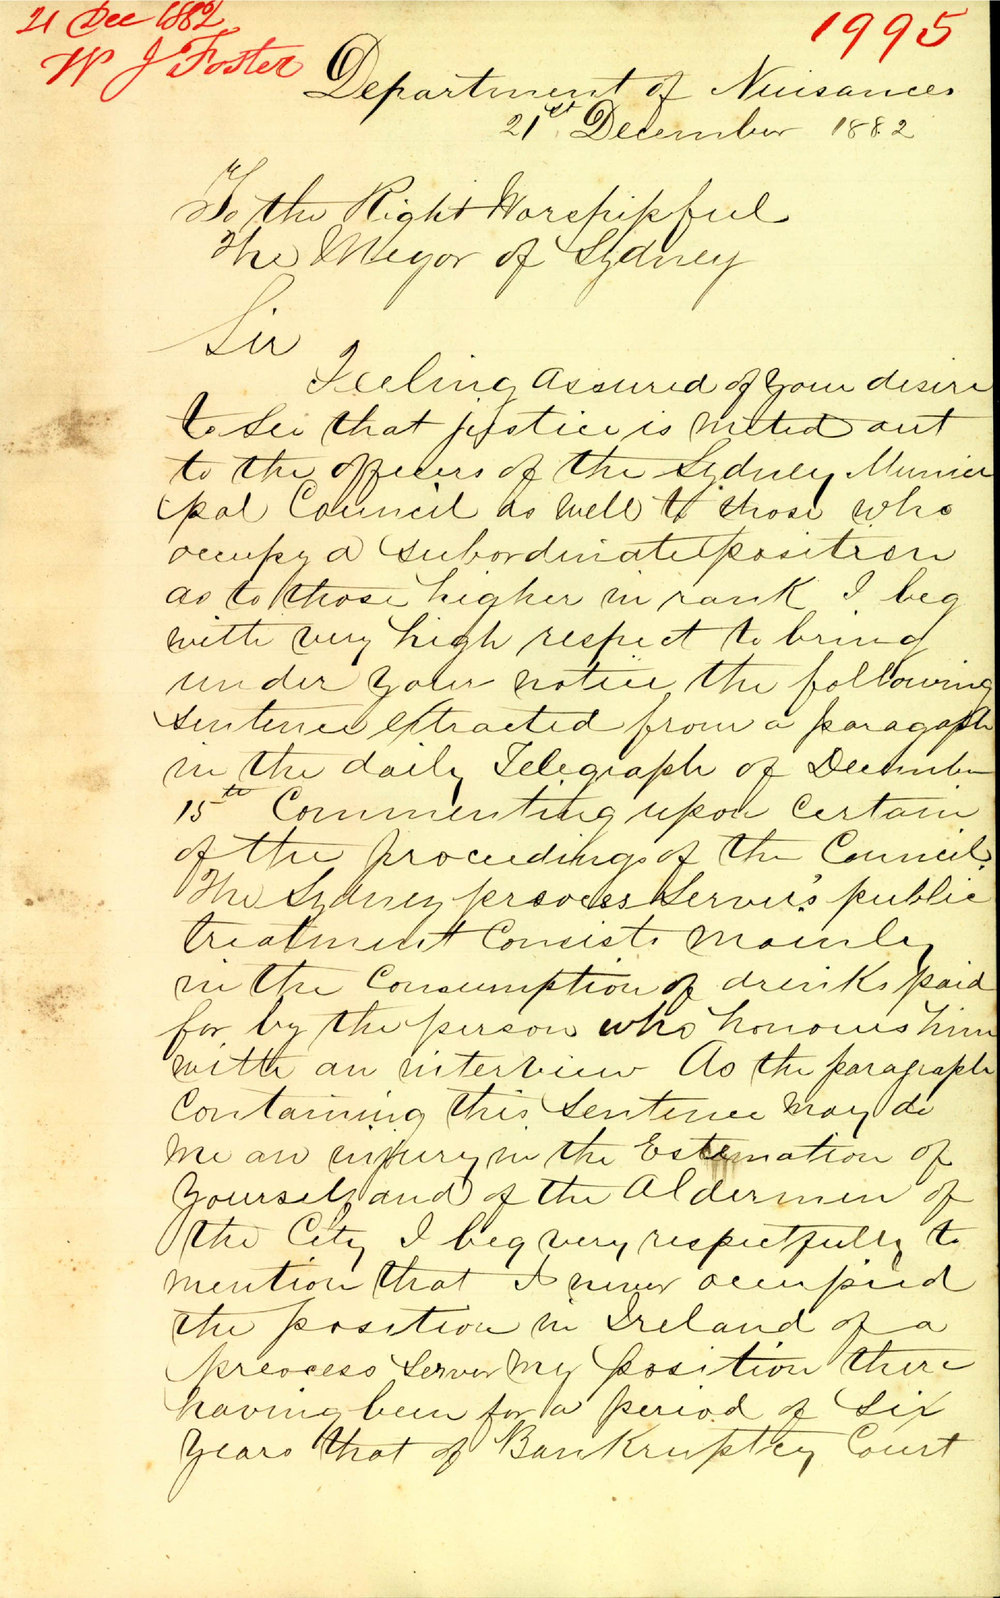 21 Dec 1882
W J Foster
1995
Department of Nuisances
21st December 1882
To the Right Worshipful
The Meyor of Sydney
Sir
Feeling assured of your desire
to see that justice is meted out
to the officers of the Sydney Munici
pal Council as well to those who
occupy a subordinate position
as to those higher in rank I beg
with very high respect to bring
under your notice the following
sentence extracted from a paragaph
in the daily Telegraph of December
15th Commenting upon certain
of the proceedings of the Council.
The Sydney process Server's public
treatment Consists mainly
in the Consumption of drinks paid
for by the person who honours him
with an interview As the paragraph
Containing this sentence may do
me an injury in the Estemation of
yourself and of the Aldermen of
the City I beg very respectfully to
mention that I never occupied
the position in Ireland of a
preocess Server my position there
having been for a period of six
years that of Bankruptcy Court